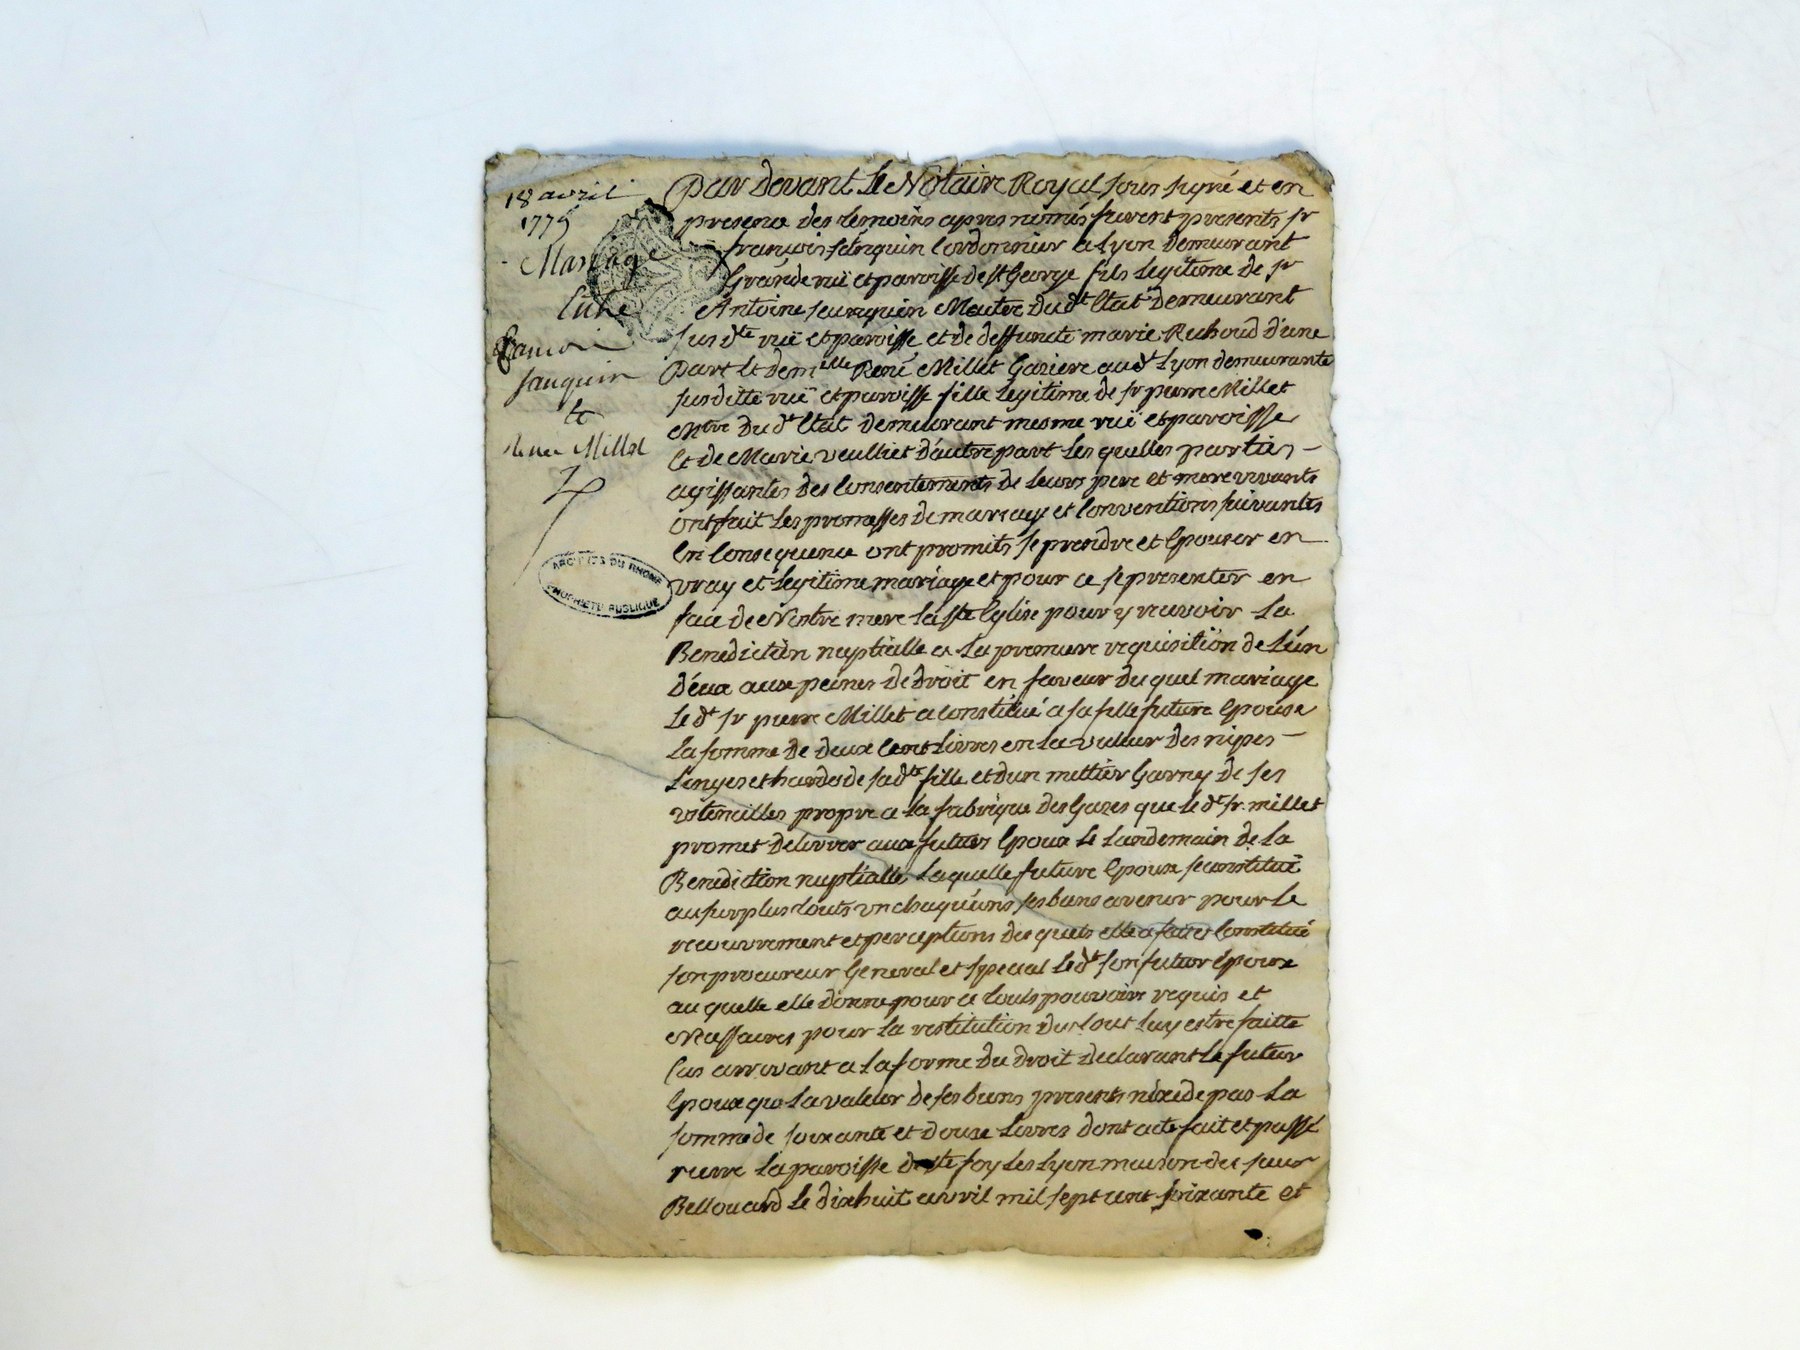 18 avril
1775
Mariage
Entre
françois
Janquin
et
renee Millet
ARCHIVES DU RHONE
PROPRIETE PUBLIQUE
Par devant Le Notaire Royal sous signé et en
presence des temoins apres només furent presents sr
françois cordonnier a Lyon demeurant
Grande ruë et paroisse de st George fils Legitime de sr
Antoine Maitre dudt Etat demeurant
susdte ruë et paroisse et de deffuncte marie Ruhoud d'une
Part Et demelle René Millet Gaziere audt Lyon demeurante
susditte ruë et paroisse fille Legitime de sr pierre Millet
Mtre du dt Etat demeurant mesme ruë et paroisse
Et de Marie veulliet d'autre part Les quelles parties
agissantes des consentements de Leurs pere et mere vivants
ont fait Les promesses de mariage et Conventions suivantes
En Consequence ont promits se prendre et Epouser en
vray et Legitime mariage et pour ce se presenter en
face de Nostre mere La ste Eglise pour y recevoir La
Benediction nuptialle a La premiere requisition de L'un
d'eux aux peines de droit en faveur du quel mariage
Le dt sr pierre Millet a Constitué a sa fille future Epouse
La somme de deux Cent Livres en La valleur des nipes
Linges et hardes de sa dte fille et d'un mettier Garny de ses
utencilles propre a La fabrique des Gazes que Le dt sr millet
promet delivrer aux futurs Epoux Le Landemain de La
Benediction nuptialle Laquelle future Epouse se constitue
au surplus touts un chaqu'uns ses biens avenir pour Le
recouvrement et perceptions des quels elle a fait et Constitué
son procureur General et special Le dt son futur Epoux
au quelle elle donne pour ce touts pouvoirs requis et
Nessaires pour La restitution du tout Luy estre faitte
Cas arrivant a La forme du droit declarant Le futur
Epoux que La valeur de ses biens presents n'exede pas La
somme de soixante et douze Livres dont acte fait et passé
riere La paroisse de ste foy Les Lyon maison des sieur
Bellouard Le dixhuit avril mil sept cent soixante et